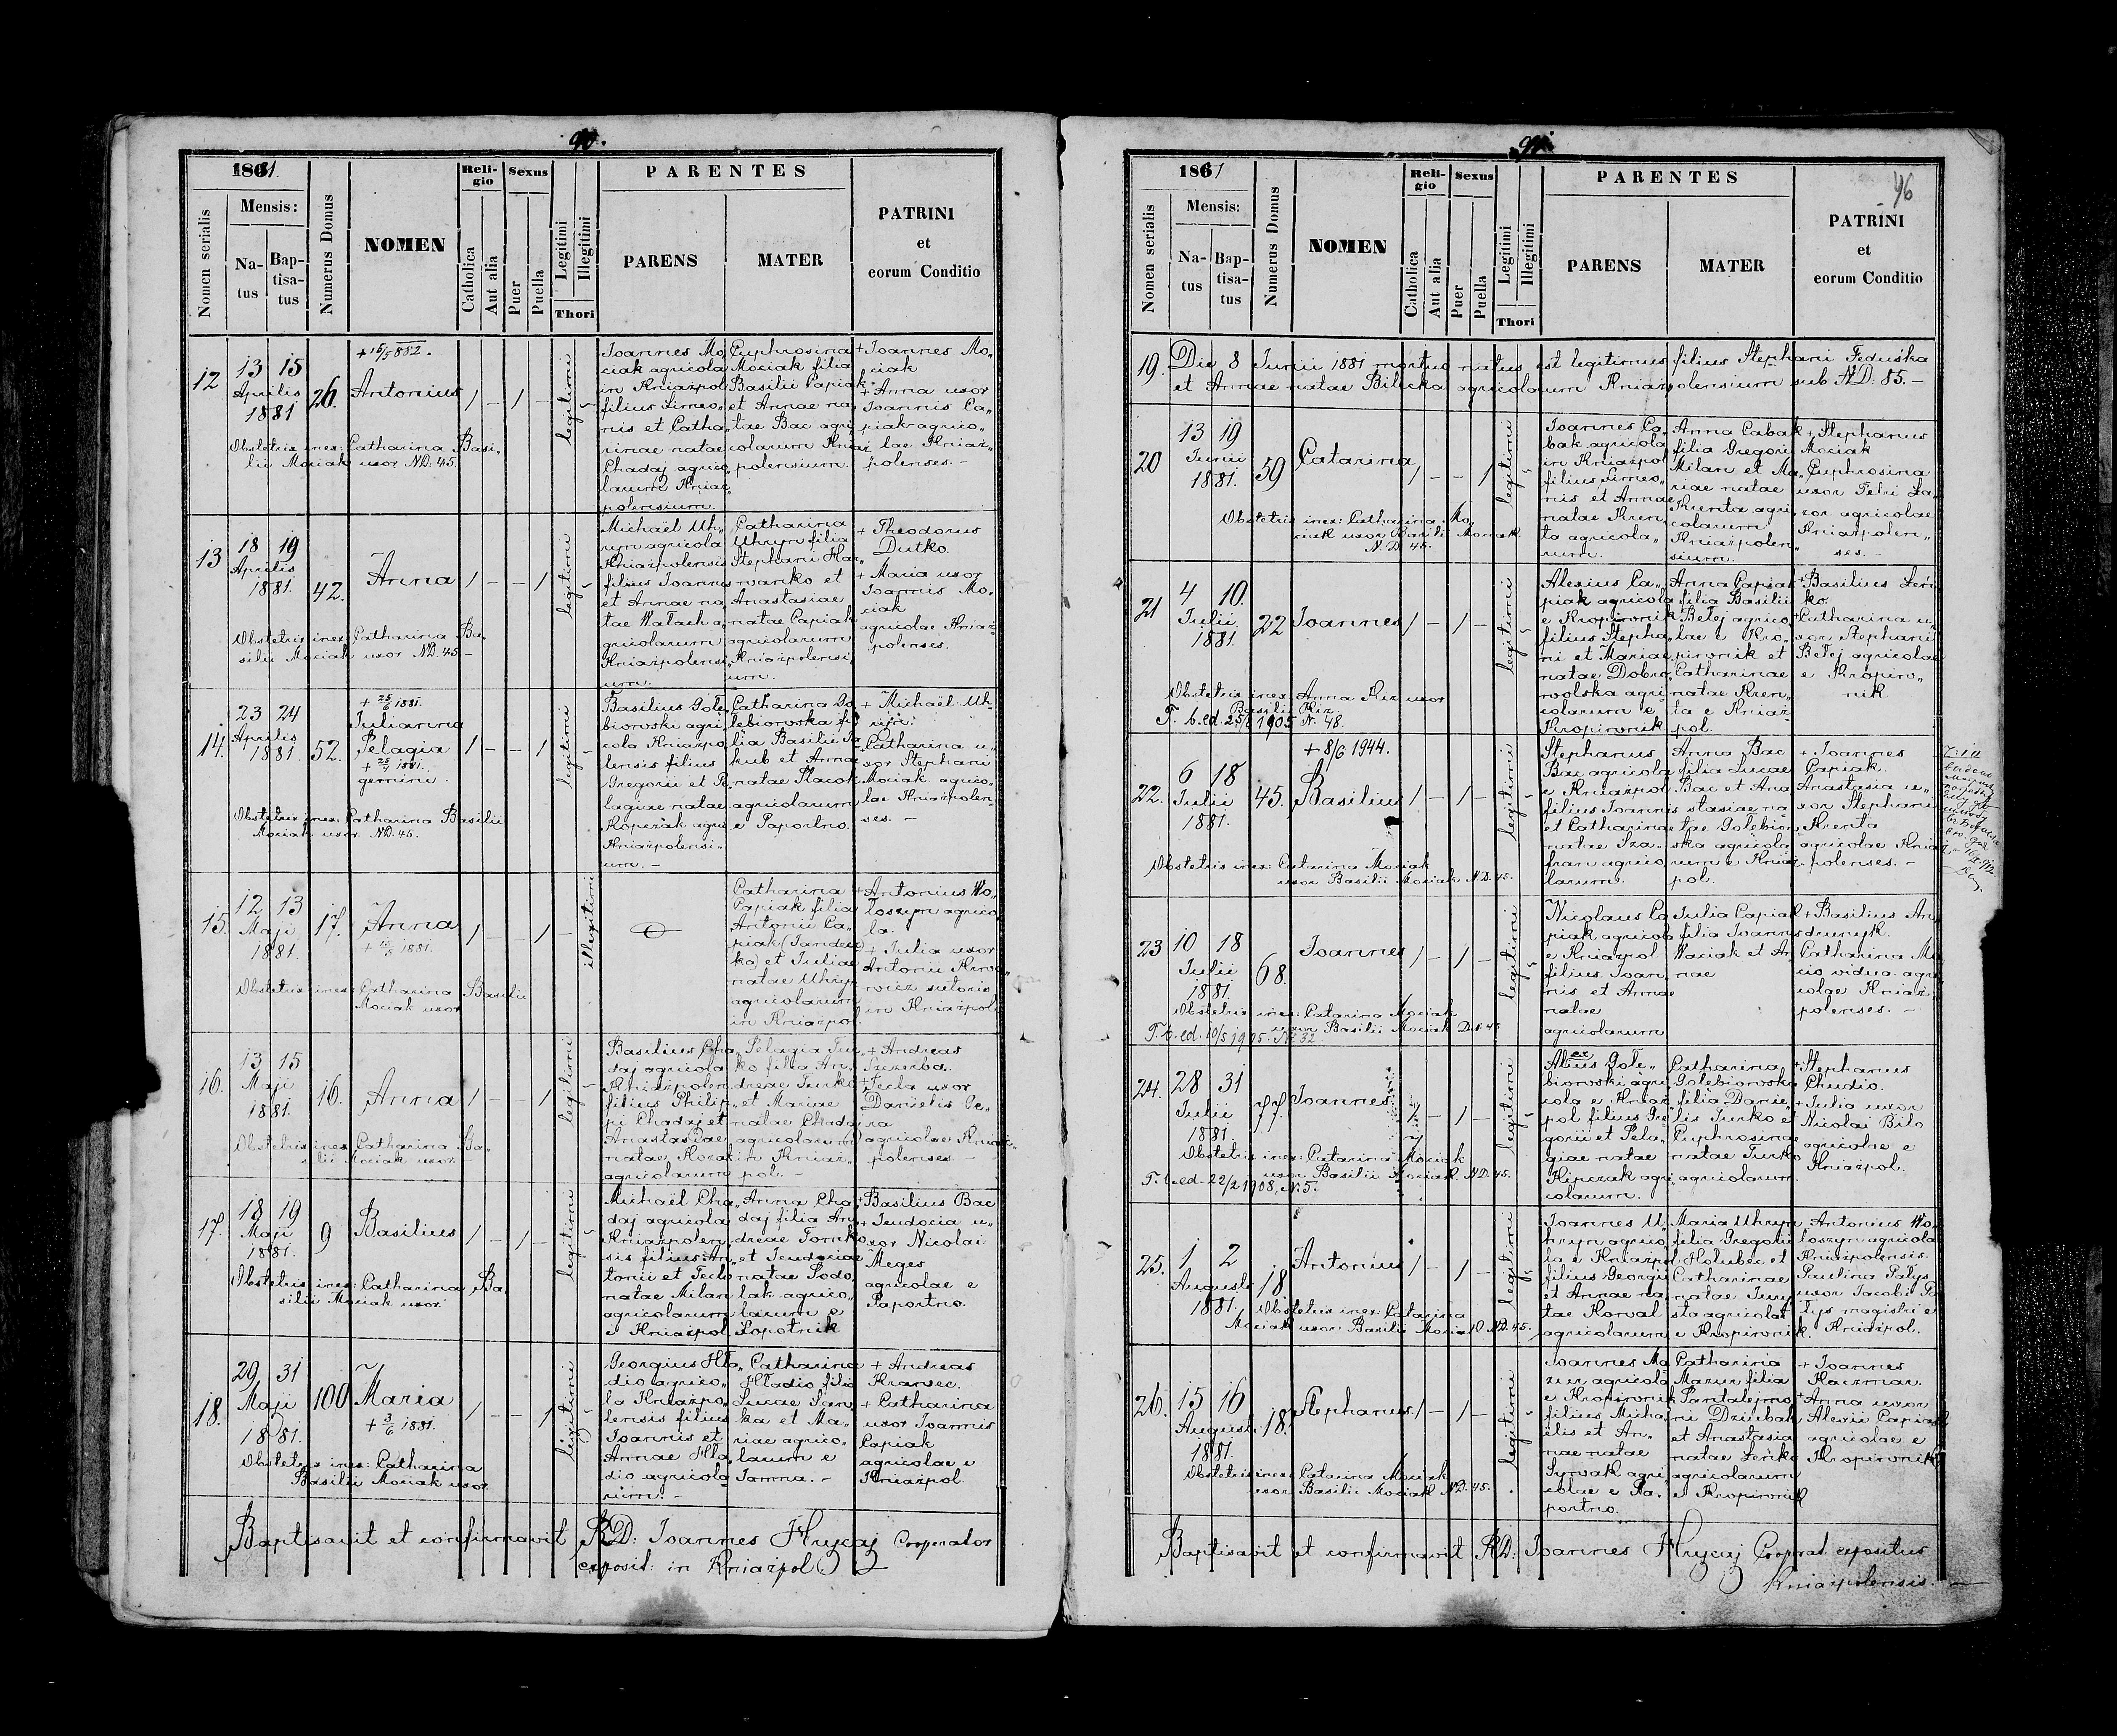 90.
1881.
Nomen serialis
Mensis:
Na-
tus
Bap-
tisa-
tus
Numerus Domus
NOMEN
Reli-
gio
Catholica
Aut alia
Sexus
Puer
Puella
Legitimi
Illegitimi
Thori
PARENTES
PARENS
MATER
PATRINI
et
eorum Conditio
12
13 15
Aprilis
1881
26.
+ 15/5 882.
Antonius
1 - 1 -
legitimi
Joannes Mo„
ciak agricola
in Kniażpol
filius Simeo„
nis et Catha„
rinae natae
Chadaj agrico„
larum Kniaż„
polensium.
Euphrosina
Mociak filia
Basilii Capiak
et Annae na„
tae Bac agri„
colarum Kniaż„
polensium.
+ Joannes Mo„
ciak
+ Anna uxor
Joannis Ca„
piak agrico„
lae Kniaż„
polenses. -
Obstetrix inex: Catharina Basi„
lii Mociak uxor ND. 45.
13
18 19
Aprilis
1881.
42.
Anna
1 - - 1
legitimi
Michaël Uh„
ryn agricola
Kniażpolensis
filius Joannis
et Annae na„
tae Walach a„
gricolarum
Kniażpolensi„
um.
Catharina
Uhryn filia
Stephani Ha„
rwanko et
Anastasiae
natae Capiak
agricolarum
Kniażpolensi„
um.
+ Theodorus
Dutko.
+ Maria uxor
Joannis Mo„
ciak
agricolae Kniaż„
polenses.
Obstetrix inex: Catharina Ba„
silii Mociak uxor ND. 45 -
14.
23 24
Aprilis
1881.
52.
+ 25/6 1881.
Julianna
Pelagia
+ 25/4 1881.
gemini.
1 - - 1
legitimi
Basilius Gołe„
biowski agri„
cola Kniażpo„
lensis filius
Gregorii et Pe„
lagiae natae
Kopczak agri„
Kniażpolensi„
um. -
Catharina Go„
łebiowska fi„
lia Basilii Ja„
kub et Annae
natae Placok
agricolarum
e Paportno.
+ Michaël Uh„
ryn.
Catharina u„
xor Stephani
Mociak agrico„
lae Kniażpolen„
ses. -
Obstetrix inex: Catharina Basilii
Mociak uxor ND. 45.
15.
12 13
Maji
1881.
17.
Anna
+ 15/5 1881.
1 - - 1
illegitimi
Catharina
Capiak filia
Antonii Ca„
piak (Jandec„
ko) et Juliae
natae Uhryn
agricolarum
in Kniażpol.
+ Antonius Wo„
łoszyn agrico„
la.
+ Julia uxor
Antonii Kiwo„
wicz sutoris
in Kniażpol.
Obstetrix inex: Catharina Basilii
Mociak uxor
16.
13 15
Maji
1881.
16.
Anna
1 - - 1
legitimi
Basilius Cha„
daj agricola
Kniażpolen.
filius Philip„
pi Chadaj et
Anastasiae
natae Kozak
agricolarum
Pelagia Jur„
ko filia An„
dreae Jurko
et Mariae
natae Chadaj
agricolarum
in Kniaż„
pol. -
+ Andreas
Szczerba.
+ Tecla uxor
Danielis Pe„
na
agricolae Kniaż„
polenses. -
Obstetrix inex: Catharina Ba„
silii Mociak uxor -
17.
18 19
Maji
1881.
9
Basilius
1 - 1 -
legitimi
Michaël Cha„
daj agricola
Kniażpolen„
sis filius An„
tonii et Teclo
natae Milan
agricolarum
e Kniażpol
Anna Cha„
daj filia An„
dreae Tomko
et Jeudociae
natae Podo„
lak agrico„
larum e
Łopotnik
+ Basilius Bac
+ Jeudocia u„
xor Nicolai
Meges
agricolae e
Paportno.
Obstetrix inex: Catharina Ba„
silii Mociak uxor
18.
29 31
Maji
1881.
100
Maria
+ 3/6 1881.
1 - - 1
legitimi
Georgius Hła„
dio agrico„
la Kniażpo„
lensis filius
Joannis et
Annae Hła„
dio agricola„
rum. -
Catharina
Hładio filia
Lucae Jan„
ka et Ma„
riae agrico„
larum e
Jamna. -
+ Andreas
Kransec.
+ Catharina
uxor Joannis
Capiak
agricolae e
Kniażpol.
Obstetrix inex: Catharina
Basilii Mociak uxor
Baptisavit et confirmavit RD: Joannes Hrycaj Cooperator
exposit: in Kniażpol
91.
46
1881
Nomen serialis
Mensis:
Na-
tus
Bap-
tisa-
tus
Numerus Domus
NOMEN
Reli-
gio
Catholica
Aut alia
Sexus
Puer
Puella
Legitimi
Illegitimi
Thori
PARENTES
PARENS
MATER
PATRINI
et
eorum Conditio
19. Die 8 Junii 1881 mortuo natus est legitimus filius Stephani Feduśka
et Annae natae Bilicka agricolarum Kniażpolensium sub ND. 85. -
20
13 19
Junii
1881.
59
Catarina
1 - - 1
legitimi
Joannes Ca„
bak agricola
in Kniażpol
filius Simeo„
nis et Annae
natae Kren„
ta agricola„
rum.
Anna Cabak
filia Gregorii
Milan et Ma„
riae natae
Krenta agri„
colarum
Kniażpolen„
sium.
+ Stephanus
Mociak
Euphrosina
uxor Petri La„
zor agricolae
Kniażpolen„
ses. -
Obstetrix inex: Catharina Mo„
ciak uxor Basilii Mociak
N.D. 45.
21
4 10.
Julii
1881.
22
Joannes
1 - 1 -
legitimi
Alexius Ca„
piak agricola
e Kropiwnik
filius Stepha„
ni et Mariae
natae Dobro„
wolska agri„
colarum e
Kropiwnik
Anna Capiak
filia Basilii
Betej agrico„
lae e Kro„
piwnik et
Catharinae
natae Kren„
ta e Kniaż„
pol.
+ Basilius Seń„
ko.
+ Catharina u„
xor Stephani
Betej agricolae
e Kropiw„
nik.
Obstetrix inex Anna Kiz uxor
Basilii Kiz
T. b. ed. 25/8 1905 N. 48.
22.
6 18
Julii
1881.
45.
+ 8/6 1944.
Basilius
1 - 1 -
legitimi
Stephanus
Bac agricola
e Kniażpol
filius Joannis
et Catharinae
natae Sza„
fran agrico„
larum.
Anna Bac
filia Lucae
Bac et Ana„
stasiae na„
tae Gołebiow„
ska agricola„
rum e Kniaż„
pol.
+ Joannes
Capiak.
Anastasia u„
xor Stephani
Krenta
agricolae Kniaż„
polenses. -
Obstetrix inex: Catarina Mociak
uxor Basilii Mociak N.D. 45.
23
10 18
Julii
1881.
68.
Joannes
1 - 1 -
legitimi
Nicolaus Ca„
piak agricola
e Kniażpol
filius Joan„
nis et Annae
natae
agricolarum
Julia Capiak
filia Joannis
Maciak et An„
nae
+ Basilius An„
drunyk.
Catharina Mo„
cio vidua agri„
colae Kniaż„
polenses. -
Obstetrix inex: Catarina Mociak
uxor Basilii Mociak D.N. 45
T. b. ed. 10/5 1905. N: 32
24.
28 31
Julii
1881.
77.
Joannes
1 - 1 -
legitimi
Alexius Gołe„
biowski agri„
cola e Kniaż„
pol filius Gre„
gorii et Pela„
giae natae
Kipczak agri„
colarum.
Catharina
Golebiowska
filia Danie„
lis Jurko et
Euphrosinae
natae Jurko
agricolarum.
+ Stephanus
Chudio.
+ Julia uxor
Nicolai Bito
agricolae e
Kniażpol.
Obstetrix inex: Catarina Mociak
uxor Basilii Mociak N.D. 45.
T. b. ed. 22/2 1908, N: 5.
25.
1 2
Augusti
1881.
18.
Antonius
1 - 1 -
legitimi
Joannes U„
hryn agrico„
la e Kniażpol
filius Georgii
et Annae na„
tae Kowal
agricolarum
Maria Uhryn
filia Gregorii
Holubec et
Catharinae
natae Twy„
sta agricolae
e Kropiwnik.
Antonius Wo„
łoszyn agricola
Kniażpolensis.
Paulina Patys
uxor Jacobi Pa„
tys magistri e
Kniażpol.
Obstetrix inex: Catarina
Mociak uxor Basilii Mociak ND. 45.
26.
15 16
Augusti
1881.
18.
Stephanus
1 - 1 -
legitimi
Joannes Ma„
zur agricola
e Kropiwnik
filius Micha„
ëlis et An„
nae natae
Syrwak agri„
colae e Pa„
portno.
Catharina
Mazur filia
Pantalejmo„
ni Dziubak
et Anastasia
natae Seńko
agricolarum
e Kropiwnik
+ Joannes
Kaczmar.
+ Anna uxor
Alexii Capiak
agricolae e
Kropiwnik
Obstetrix inex: Catarina Mociak
uxor Basilii Mociak ND. 45.
Baptisavit et confirmavit RD: Joannes Hrycaj Cooperat. expositus
Kniażpolensis. -